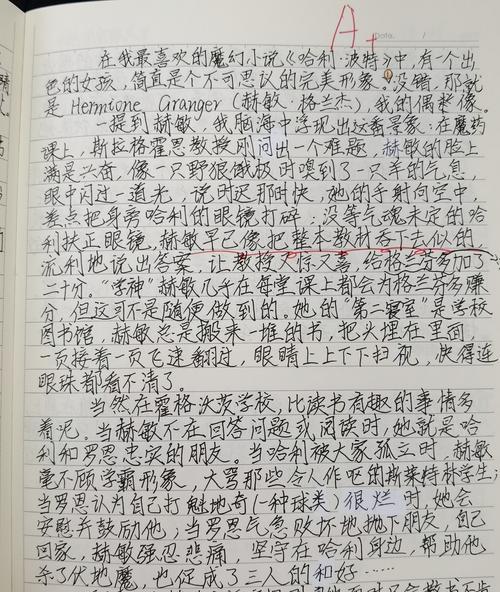 A+
Date. /
在我最喜欢的魔幻小说《哈利·波特》中,有一个出
色的女孩,简直是个不可思议的完美形象。没错,那就
是 Hermione Granger (赫敏·格兰杰),我的偶像。
一提到赫敏,我脑海中浮现出这番景象:在魔药
课上,斯拉格霍恩教授刚问出一个难题,赫敏的脸上
满是兴奋,像一只野狼饿极时嗅到了一只羊的气息,
眼中闪过一道光,说时迟那时快,她的手射向空中,
差点把身旁哈利的眼镜打碎;没等气魂未定的哈
利扶正眼镜,赫敏早已像把整本教材吞下去似的,
流利地说出答案,让教授又惊又喜,给格兰芬多加了
二十分。“学神”赫敏几乎在每堂课上都会为格兰芬多赚
分,但这可不是随便做到的。她的“第二寝室”是学校
图书馆,赫敏总是搬来一堆的书,把头埋在里面
一页接着一页飞速翻过,眼睛上上下下扫视,快得连
眼珠都看不清了。
当然在霍格沃茨学校,比读书有趣的事情多
着呢。当赫敏不在回答问题或阅读时,她就是哈
利和罗恩忠实的朋友。当哈利被大家孤立时,赫敏
毫不顾学霸形象,大骂那些令人作呕的斯莱特林学生;
当罗恩认为自己打魁地奇(一种球类)很烂时,她会
安慰并鼓励他;当罗恩气急败坏地抛下朋友,自己
回家,赫敏强忍悲痛,坚守在哈利身边,帮助他
杀了伏地魔,也促成了三人的和好……